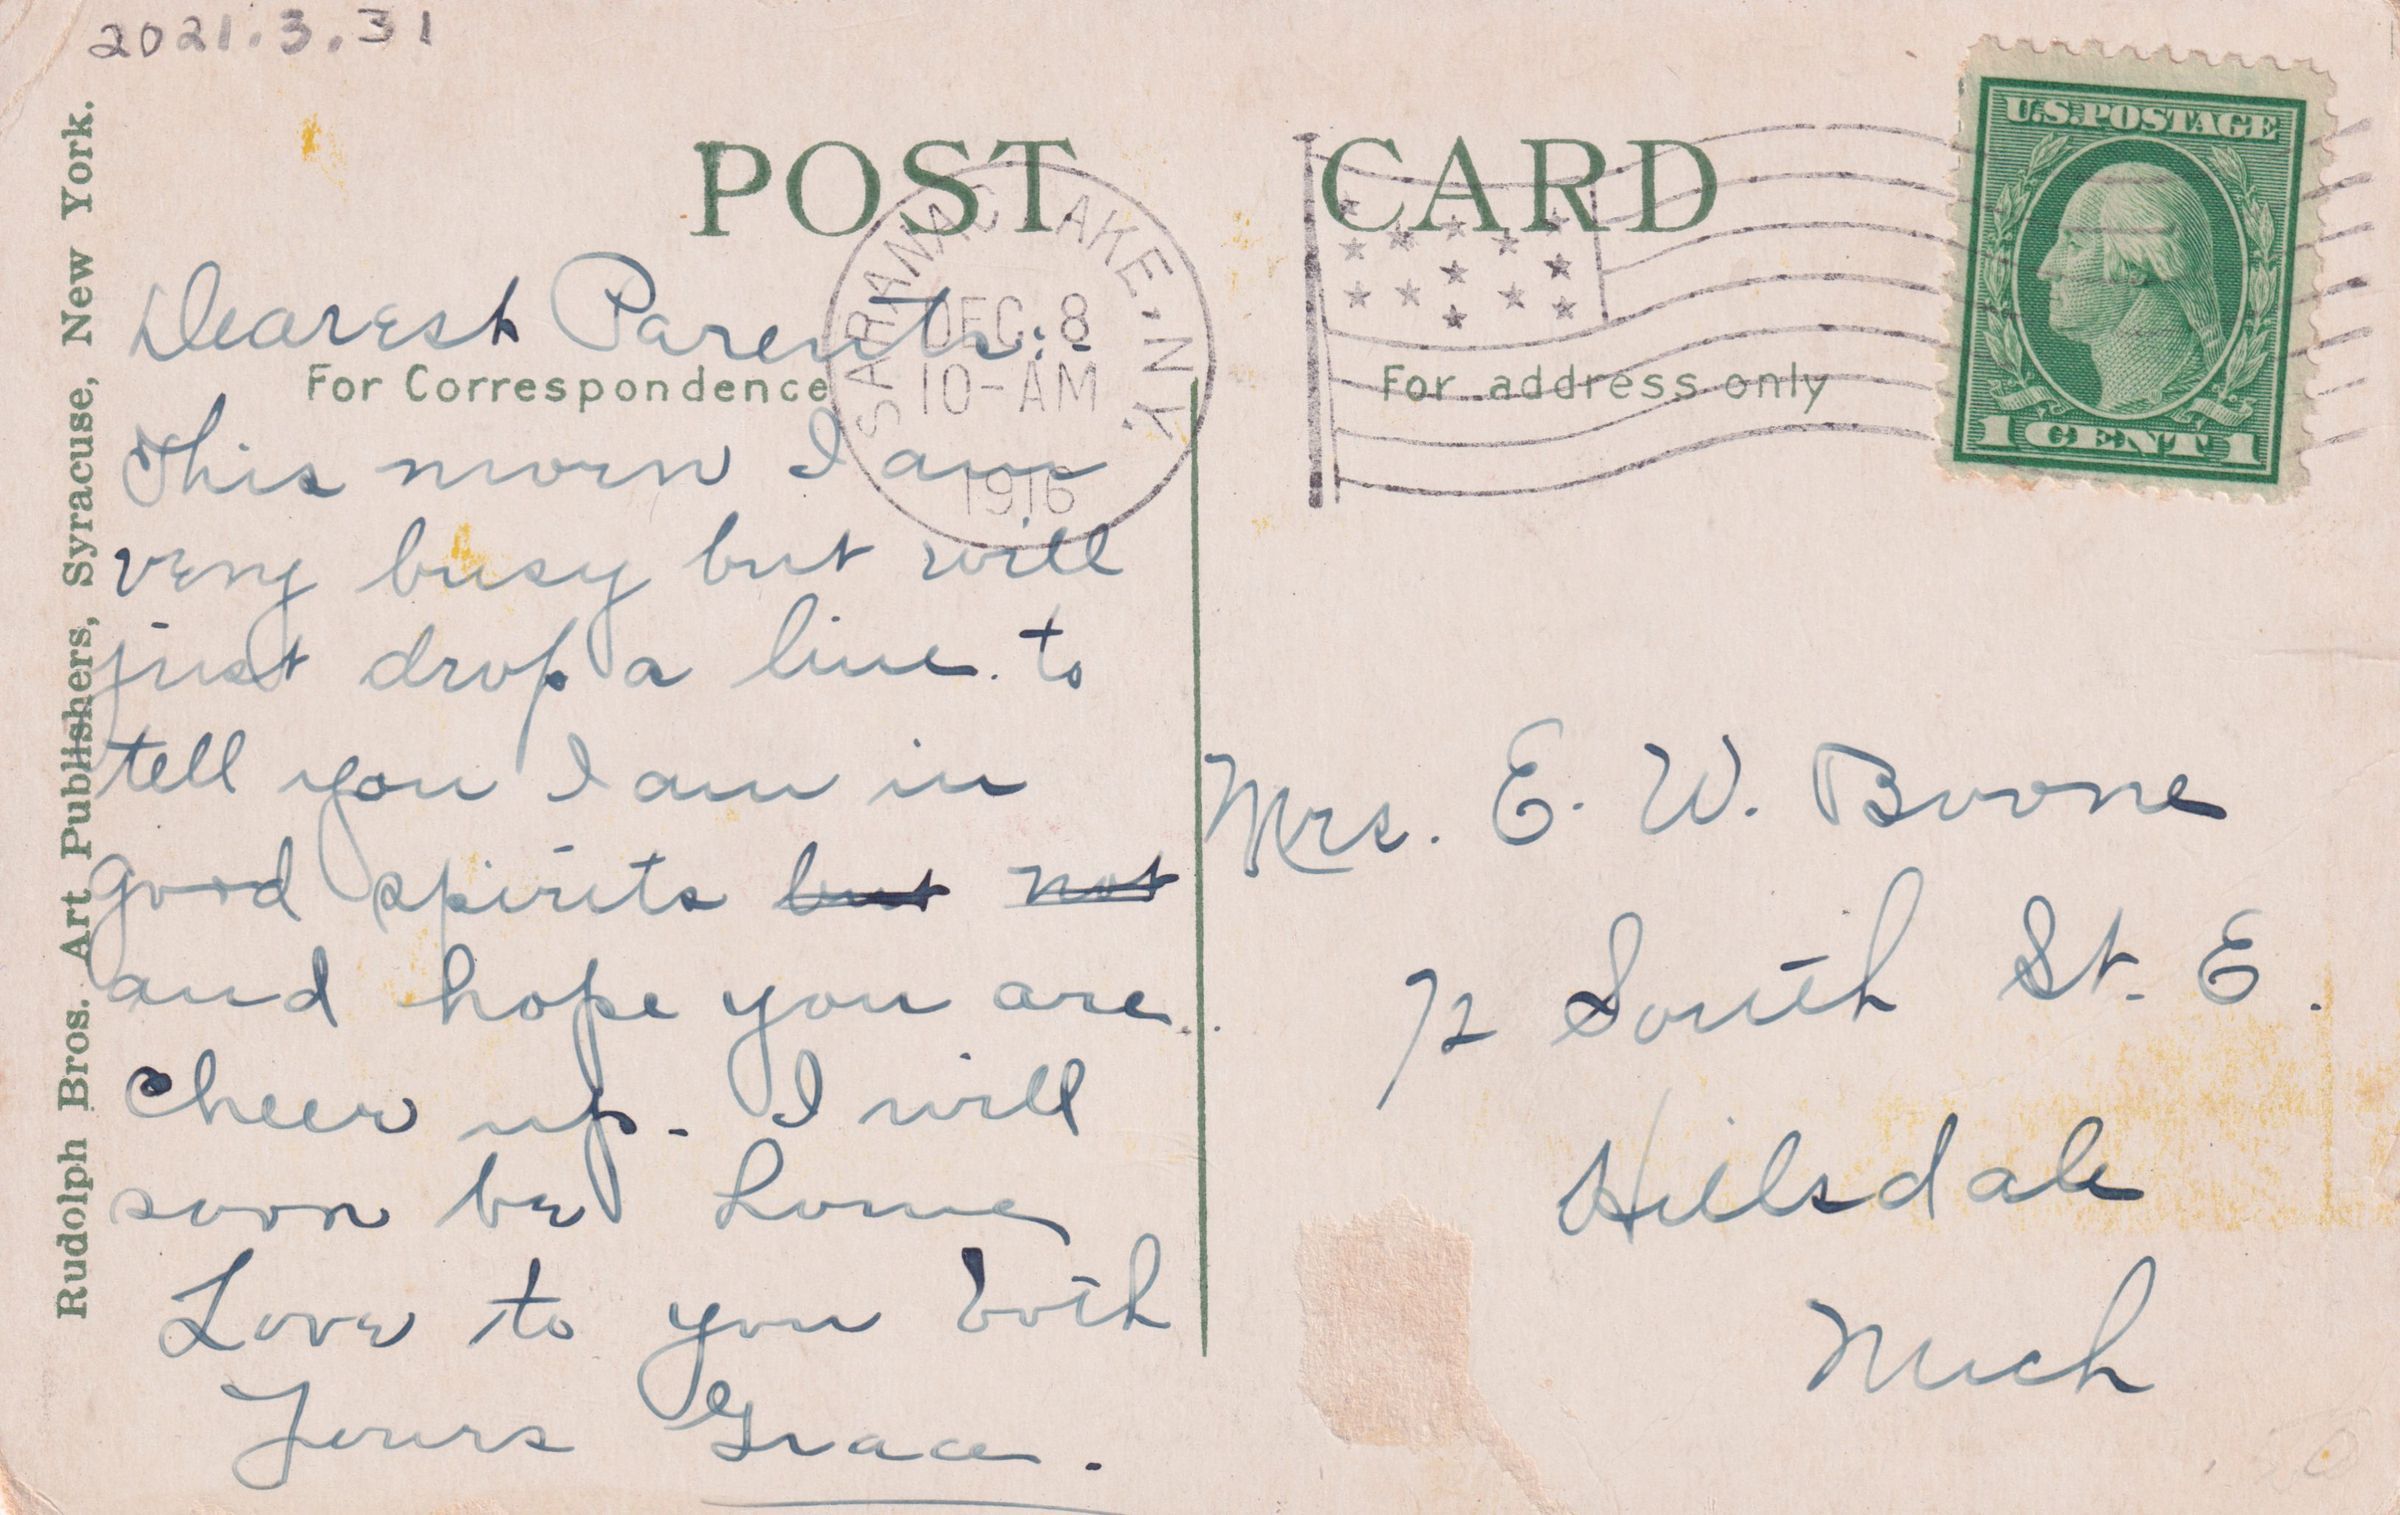 2021.3.31
Rudolph Bros. Art Publishers, Syracuse, New York.
POST CARD
SARANAC LAKE. N.Y.
DEC 8
10-AM
1916
U.S. POSTAGE
1 CENT 1
For Correspondence
For address only
Dearest Parents:-
This morn I am
very busy but will
just drop a line to
tell you I am in
good spirits but not
and hope you are
cheer up. I will
soon be home
Love to you both
Yours Grace.
Mrs. E. W. Boone
72 South St. E.
Hillsdale
Mich